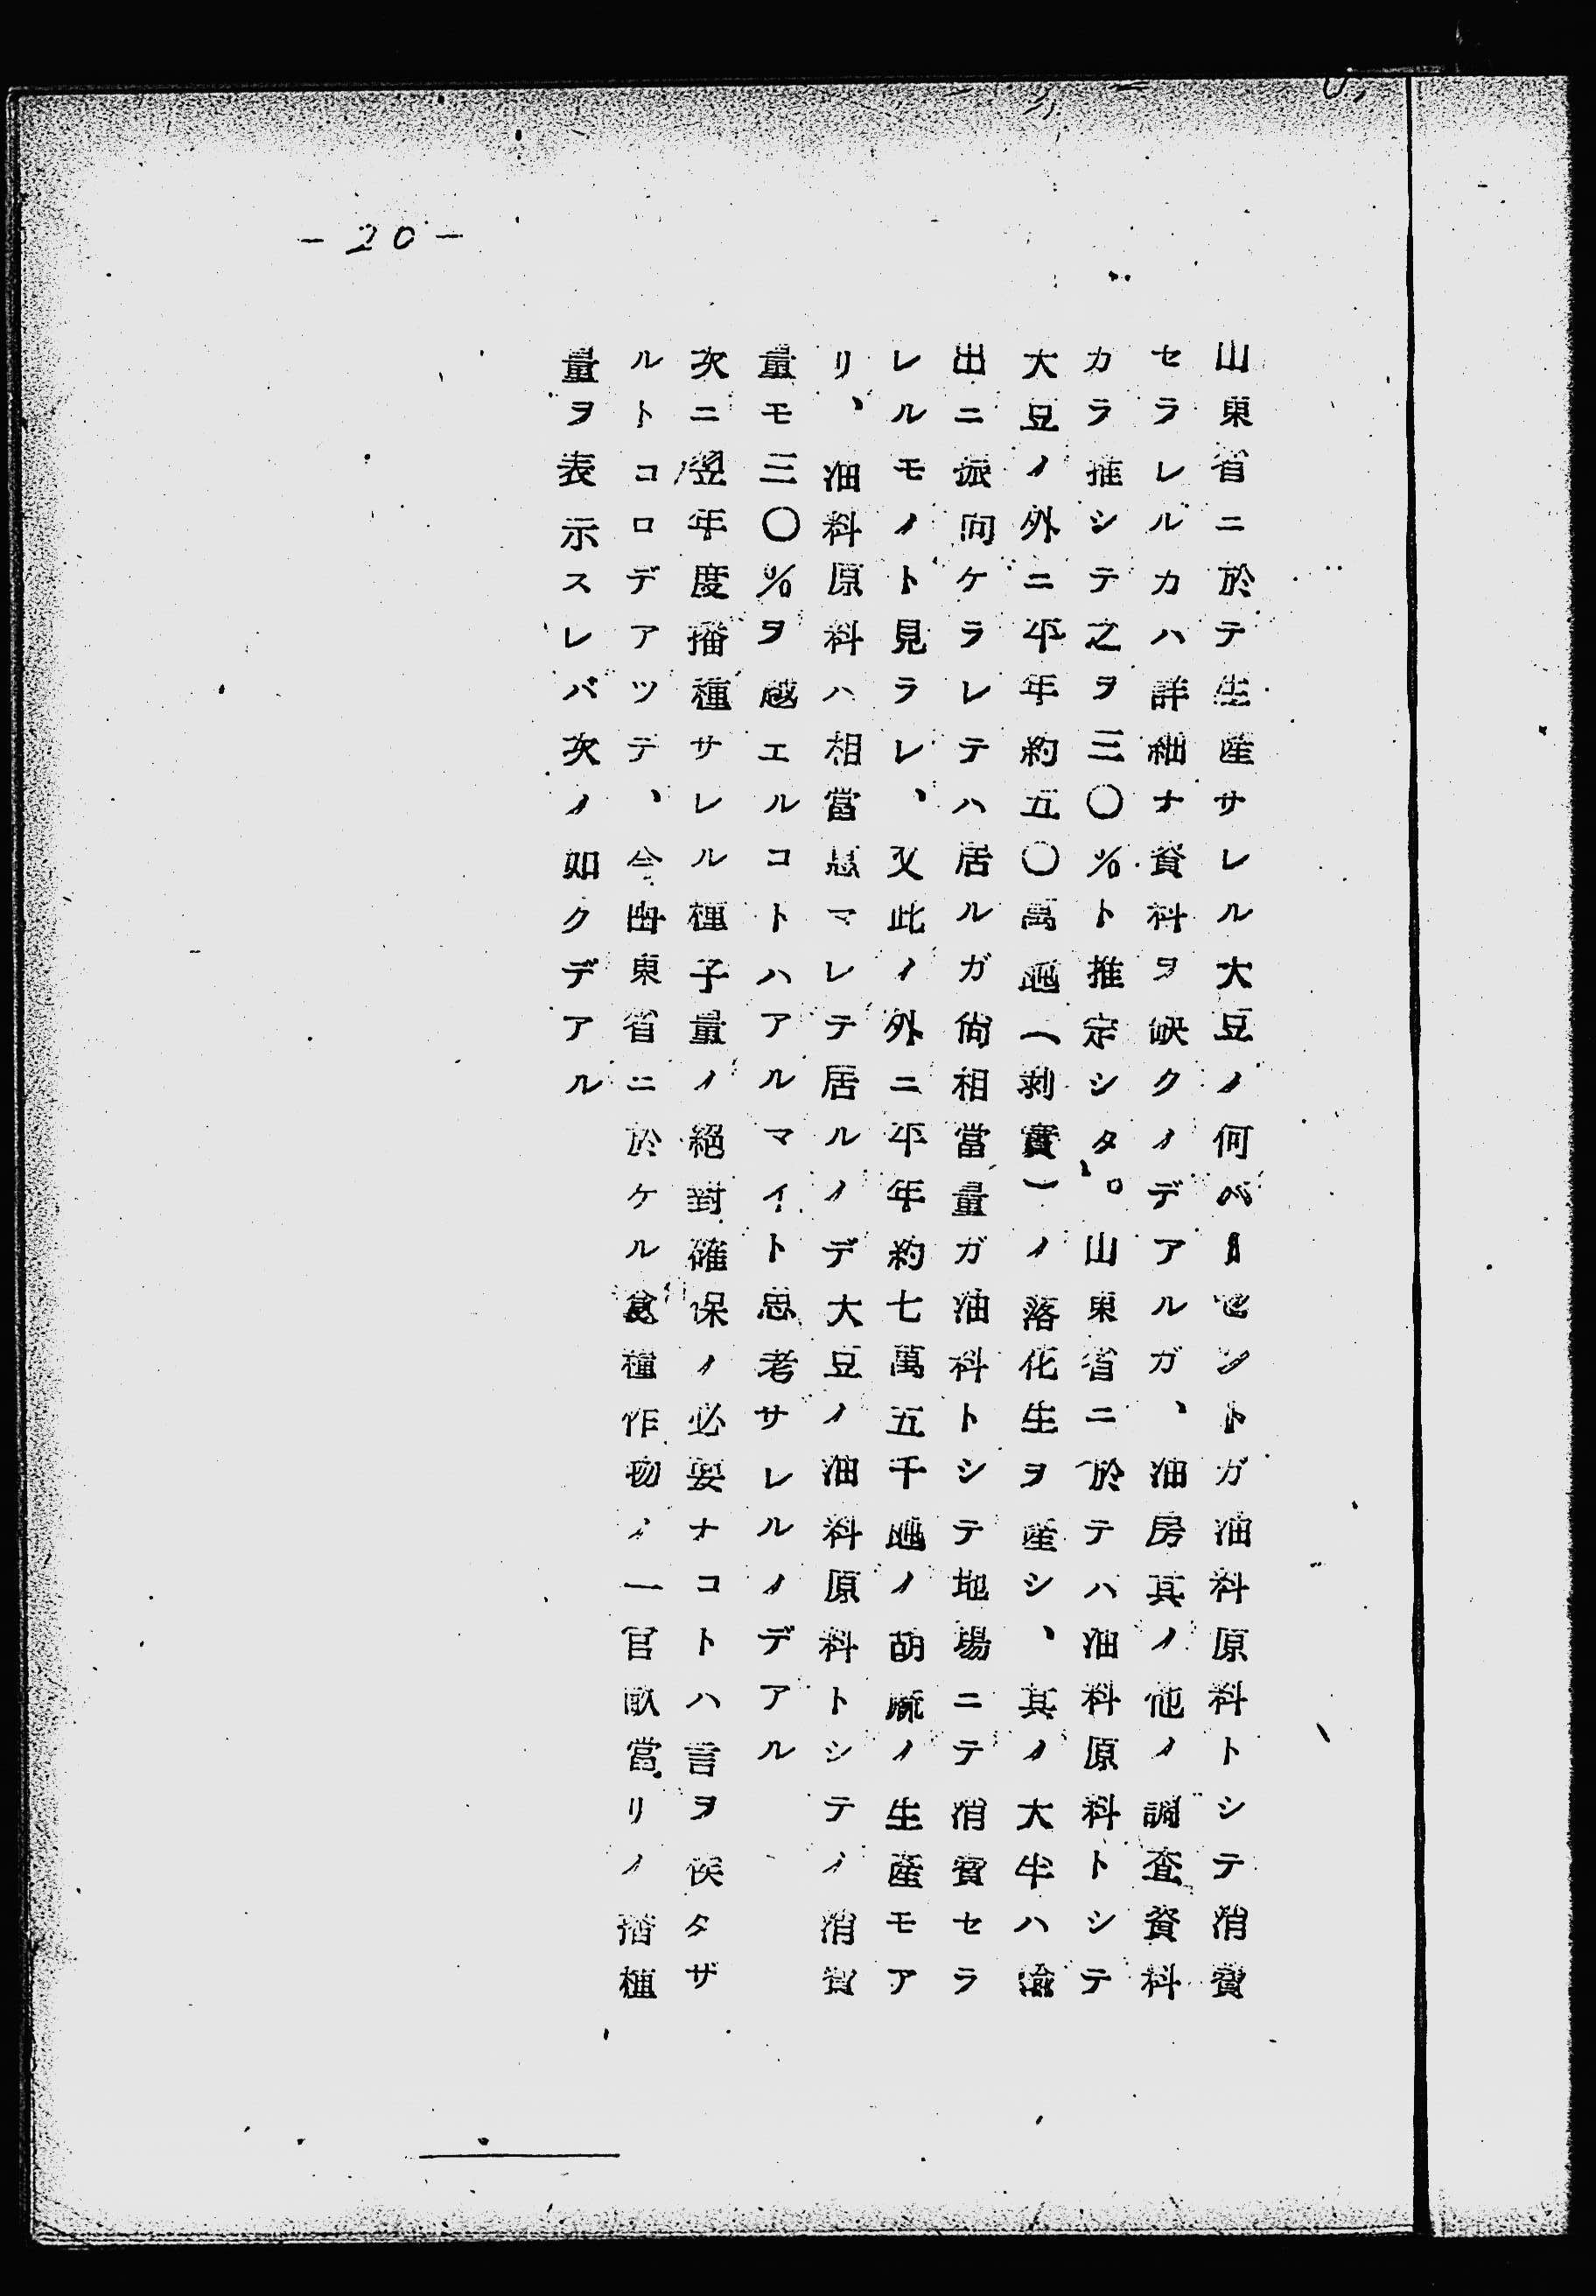 -20-
山東省ニ於テ生産サレル大豆ノ何パーセントガ油料原料トシテ消費
セラレルカハ詳細ナ資料ヲ缺クノデアルガ、油房其ノ他ノ調査資料
カラ推シテ之ヲ三〇%ト推定シタ。山東省ニ於テハ油料原料トシテ
大豆ノ外ニ平年約五〇萬瓲(剥實)ノ落花生ヲ産シ、其ノ大半ハ輸
出ニ振向ケラレテハ居ルガ尚相當量ガ油料トシテ地場ニテ消費セラ
レルモノト見ラレ、又此ノ外ニ平年約七萬五千瓲ノ胡麻ノ生産モア
リ、油料原料ハ相當惠マレテ居ルノデ大豆ノ油料原料トシテノ消費
量モ三〇%ヲ越エルコトハアルマイト思考サレルノデアル
次ニ翌年度播種サレル種子量ノ絕對確保ノ必要ナコトハ言ヲ俟タザ
ルトコロデアツテ、今山東省ニ於ケル各種作物ノ一官畝當リノ播種
量ヲ表示スレバ次ノ如クデアル